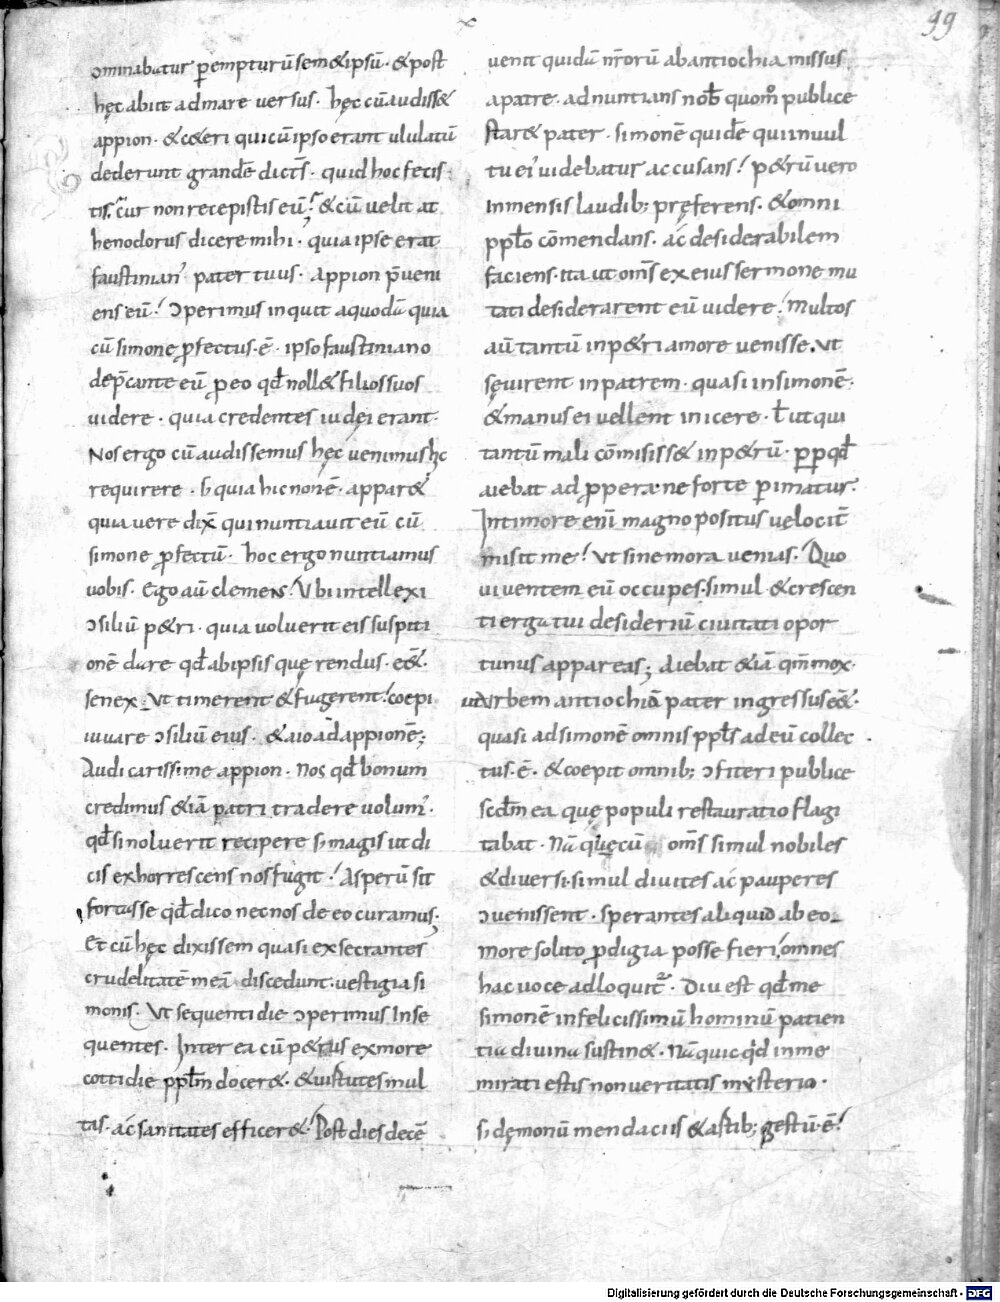 99
ↄminabatur ꝑempturū semetipsū · & post
hęc abiit ad mare versus · hęc cū audiss&
appion · & c&eri qui cū ipso erant ululatū
dederunt grandē dicētˢ · quid hoc fecis
tis · cur non recepistis eū? & cū velit at
henodorus dicere mihi · quia ipse erat
faustinian' pater tuus · Appion p̄veni
ens eū! ↄperimus inquit a quodā quia
cū simone ꝓfectus · ē · ipso faustiniano
dep̄cante eū ꝓ eo qđ noll& filios suos
videre · quia credentes iudęi erant ·
Nos ergo cū audissemus hęc venimus hc
requirere · s; quia hic non ē · appar&
quia vere dix̄ qui nuntiavit eū cū
simone ꝓfectū · hoc ergo nuntiamus
vobis · Ego aū clemens! Ubi intellexi
ↄsiliū p&ri · quia voluerit eis suspiti
onē dare qđ ab ipsis quęrendus · ess& ·
senex · Ut timerent & fugerent! coepi
iuvare ↄsiliū eius · & aio ad appionē;
Audi carissime appion · Nos qđ bonum
credimus &iā patri tradere volum' ·
qđ si noluerit recipere s; magis ut di
cis exhorrescens nos fugit! Asperū sit
fortasse qđ dico nec nos de eo curamus ·
Et cū hęc dixissem quasi exsecrantes
crudelitatē meā discedunt · vestigia si
monis · Ut sequenti die ↄperimus Inse
quentes · Inter ea cū p&rus ex more
cottidie ppl̄m docer& · & virtutes mul
tas · ac sanitates efficer&! Post dies decē
venit quidā nr̄orū ab antiochia missus
a patre · adnuntians nob̄ quom̊ publice
star& pater · simonē quidē qui in vul
tu ei' videbatur accusans! p&rū vero
inmensis laudib; pręferens · & omni
ppl̄o cōmendans · ac desiderabilem
faciens · ita ut om̄s ex eius sermone mu
tati desiderarent eū videre! Multos
aū tantū in p&ri amore venisse · Ut
sęvirent in patrem · quasi in simonē ·
& manus ei vellent inicere · ł ut qui
tantū mali cōmisiss& in p&rū · ꝓpqđ
aiebat ad ꝓpera · ne forte ꝑimatur ·
In timore eni magno positus velocit̄
misit me! Ut sine mora venias · Quo
viventem eū occupes · simul & crescen
ti erga tui desideriū civitati opor
tunus appareas; Aiebat &iā qm̄ mox ·
ut Urbem antiochiā pater ingressus ē& ·
quasi ad simonē omnis ppl̄s ad eū collec
tus · ē · & coepit omnib; ↄfiteri publice
scđm ea quę populi restauratio flagi
tabat · Nā quęcū om̄s simul nobiles
& diversi · simul divites ac pauperes
ↄvenissent · sperantes aliquid ab eo
more solito ꝓdigia posse fieri! omnes
hac voce adloquit̄ · Diu est qđ me
simonē infelicissimū hominū patien
tia divina sustin& · Nā quicqđ in me
mirati estis non veritatis mysterio ·
s; dęmonū mendaciis & astib; gestū · ē!
Digitalisierung gefördert durch die Deutsche Forschungsgemeinschaft - DFG